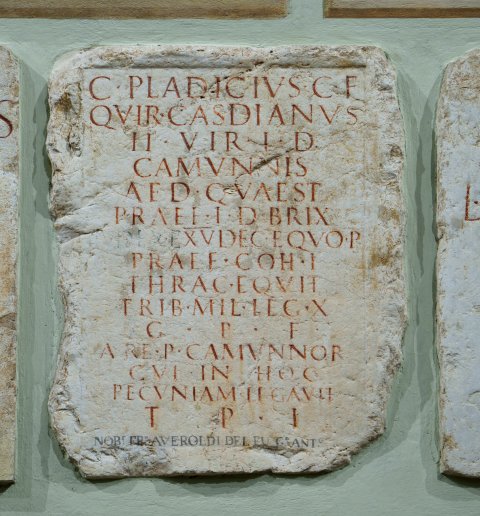 C · PLADICIVS · C · F
QVIR · CASDIANVS
II · VIR · I · D
CAMVNNIS
AED · QVAEST
PRAEF · I · D · BRIX
EX V DEC EQVO · P
PRAEF · COH · I
THRAC · EQVIT
TRIB · MIL · LEG · X
G · P · F
A RE · P · CAMVNNOR
CVI IN HOC
PECVNIAM LEGAVIT
T · P · I
AVEROLDI